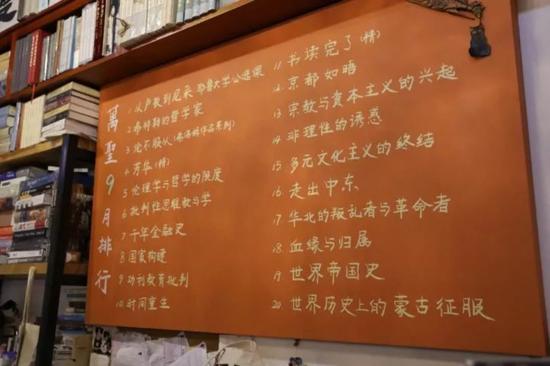 萬聖9月排行
1 从卢梭到尼采 耶鲁大学公选课
2 希特勒的哲学家
3 论不顺从(弗洛姆作品系列)
4 芳华(精)
5 伦理学与哲学的限度
6 批判性思维教与学
7 千年金融史
8 国家构建
9 功利教育批判
10 时间重生
11 书读完了(精)
12 京都如晤
13 宗教与資本主义的兴起
14 非理性的诱惑
15 多元文化主义的终结
16 走出中东
17 华北的叛乱者与革命者
18 血缘与归属
19 世界帝国史
20 世界历史上的蒙古征服